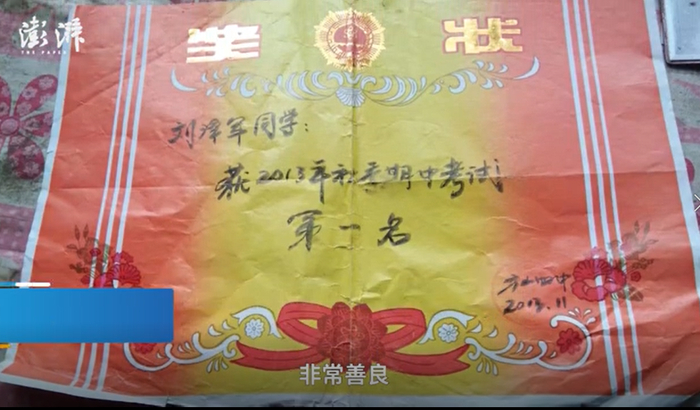 澎湃
THE PAPER
奖状
刘泽军同学：
获2013年秋季期中考试
第一名
2013.11
非常善良